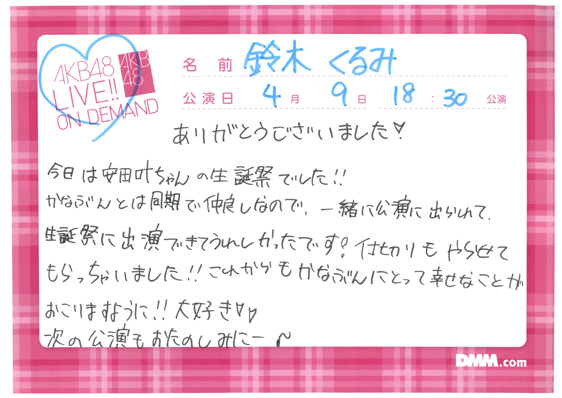 AKB48
LIVE!!
ON DEMAND
AKB
48
名前 鈴木 くるみ
公演日 4月 9日 18:30 公演
ありがとうございました♡
今日は安田叶ちゃんの生誕祭でした!!
かなぶんとは同期で仲良しなので、一緒に公演に出られて、
生誕祭に出演できてうれしかったです! 仕切りもやらせて
もらっちゃいました!! これからもかなぶんにとって幸せなことが
おこりますように!! 大好き♡♡
次の公演もおたのしみにー
DMM.com